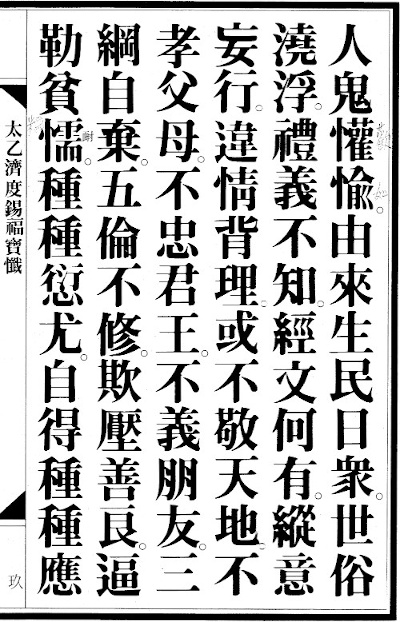 人鬼懽愉。由來生民日衆。世俗
澆浮。禮義不知。經文何有。縱意
妄行。違情背理。或不敬天地。不
孝父母。不忠君王。不義朋友。三
綱自棄。五倫不修。欺壓善良。逼
勒貧懦。種種愆尤。自得種種應
太乙濟度錫福寶懺
玖